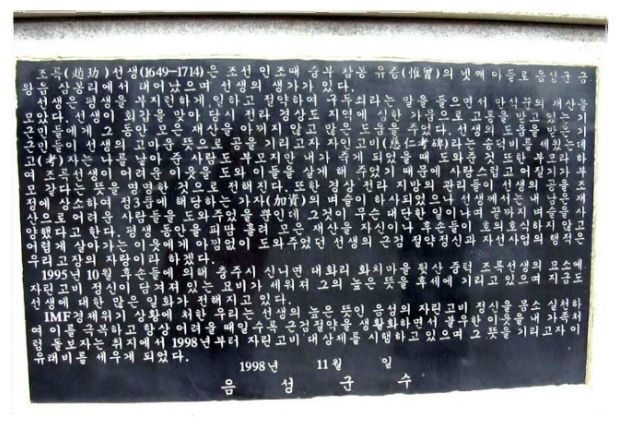 조륵(趙玏)선생(1649-1714)은 조선 인조때 증부 참봉 유증(惟曾)의 넷째 아들로 음성군 금
왕읍 삼봉리에서 태어났으며 선생의 생가가 있다.
선생은 평생을 부지런하게 일하고 절약하여 구두쇠라는 말을 들으면서 만석꾼의 재산을
모았다. 선생이 회갑을 맞아 당시 전라 경상도 지역에 심한 가뭄으로 고통을 받고 있는 기
근민들에게 그 동안 모은 재산을 아끼지 않고 많은 도움을 주었다. 선생의 도움을 받은 기
근민들이 선생의 고마운 뜻으로 공을 기리고자 자인고비(慈仁考碑)라는 송덕비를 세웠는데
고(考)자는 나를 낳아 준 사람도 부모지만 내가 죽게 되었을 때 도와준것 또한 부모라 하
여 조륵선생이 어려운 이웃을 도와 이들을 살게 해 주었기 때문에 사랑스럽고 어질기가 부
모 같다는 뜻을 명명한 것으로 전해진다. 또한 경상 전라 지방의 관리들이 선생의 공을 조
정에 상소하여 정3품에 해당하는 가자(加資)의 벼슬이 하사되었으나 선생께서는 내 남은 재
산으로 어려운 사람들을 도와주었을 뿐인데 그것이 무슨 대단한 일이냐며 끝까지 벼슬을 사
양했다고 한다. 평생 동안을 피땀 흘려 모은 재산을 자신이나 후손들이 호의호식하지 않고
어렵게 살아가는 이웃에게 아낌없이 도와주었던 선생의 근검 절약정신과 자선사업의 행적은
우리고장의 사람이라 하겠다.
1995년 10월 후손들에 의해 충주시 신니면 대화리 화치마을 뒷산 중턱 조륵선생의 묘소에
자린고비 정신이 담겨져 있는 묘비가 세워져 그의 높은 뜻을 후세에 기리고 있으며 지금도
선생에 대한 많은 일화가 전해지고 있다.
IMF경제위기 상황에 처한 우리는 선생의 높은 뜻인 음성의 자린고비 정신을 몸소 실천하
여 이를 극복하고 항상 어려울 때일 수록 근검절약을 생활화하면서 불우한 이웃을 내 가족처
럼 돌보자는 취지에서 1998년부터 자린고비 대상제를 시행하고 있으며 그 뜻을 기리고자 이
유래비를 세우게 되었다.
1998년 11월 일
음성군수